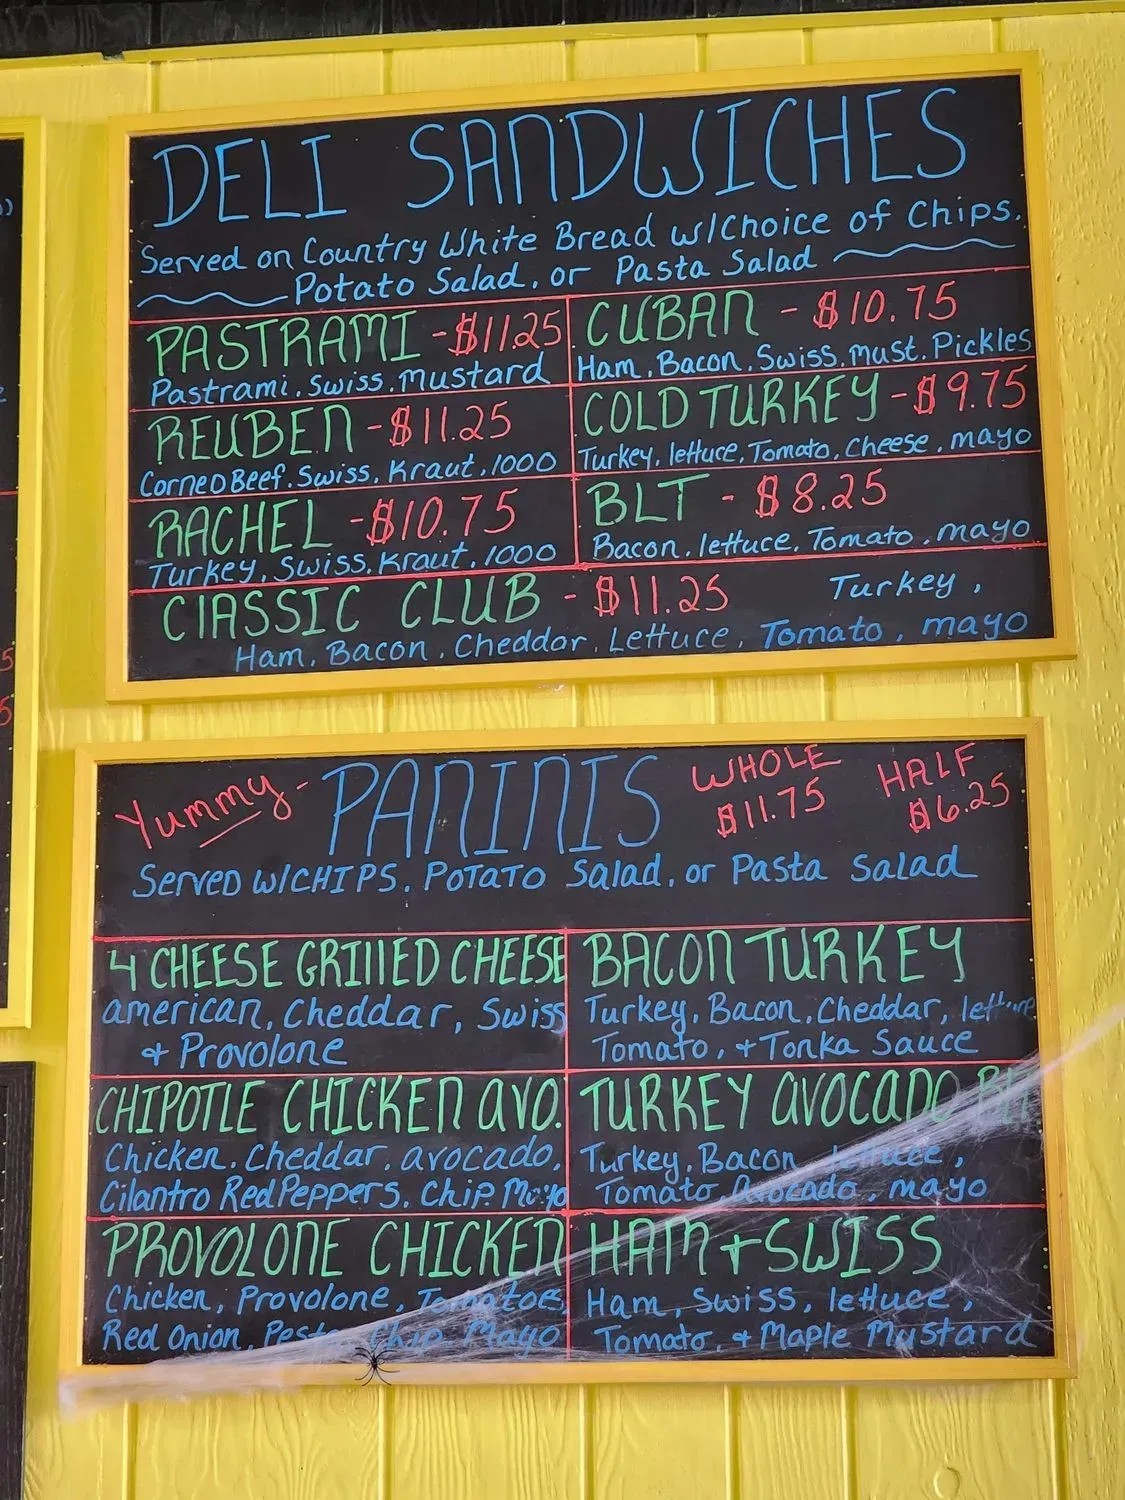 DELI SANDWICHES
Served on Country White Bread w/Choice of Chips.
Potato Salad, or Pasta Salad
PASTRAMI - $11.25
Pastrami, Swiss, Mustard
REUBEN - $11.25
Corned Beef, Swiss, Kraut, 1000
RACHEL - $10.75
Turkey, Swiss, Kraut, 1000
CUBAN - $10.75
Ham, Bacon, Swiss, Must, Pickles
COLD TURKEY - $9.75
Turkey, lettuce, Tomato, Cheese, mayo
BLT - $8.25
Bacon, lettuce, Tomato, mayo
ClASSIC CLUB - $11.25 Turkey,
Ham, Bacon, Cheddar, Lettuce, Tomato, mayo
Yummy - PANINIS WHOLE HALF
$11.75 $6.25
SERVED W/CHIPS, POTATO Salad, or Pasta Salad
4 CHEESE GRIllED CHEESE
american, Cheddar, Swiss
+ Provolone
CHIPOTLE CHICKEN AVO.
Chicken, Cheddar, avocado,
Cilantro Red Peppers, Chip Mayo
PROVOLONE CHICKEN
Chicken, Provolone, Tomatoes,
Red Onion, Pesto, Chip Mayo
BACON TURKEY
Turkey, Bacon, Cheddar, lettuce
Tomato, + Tonka Sauce
TURKEY AVOCADO
Turkey, Bacon, lettuce,
Tomato, Avocado, mayo
HAM + SWISS
Ham, Swiss, lettuce,
Tomato, + Maple Mustard